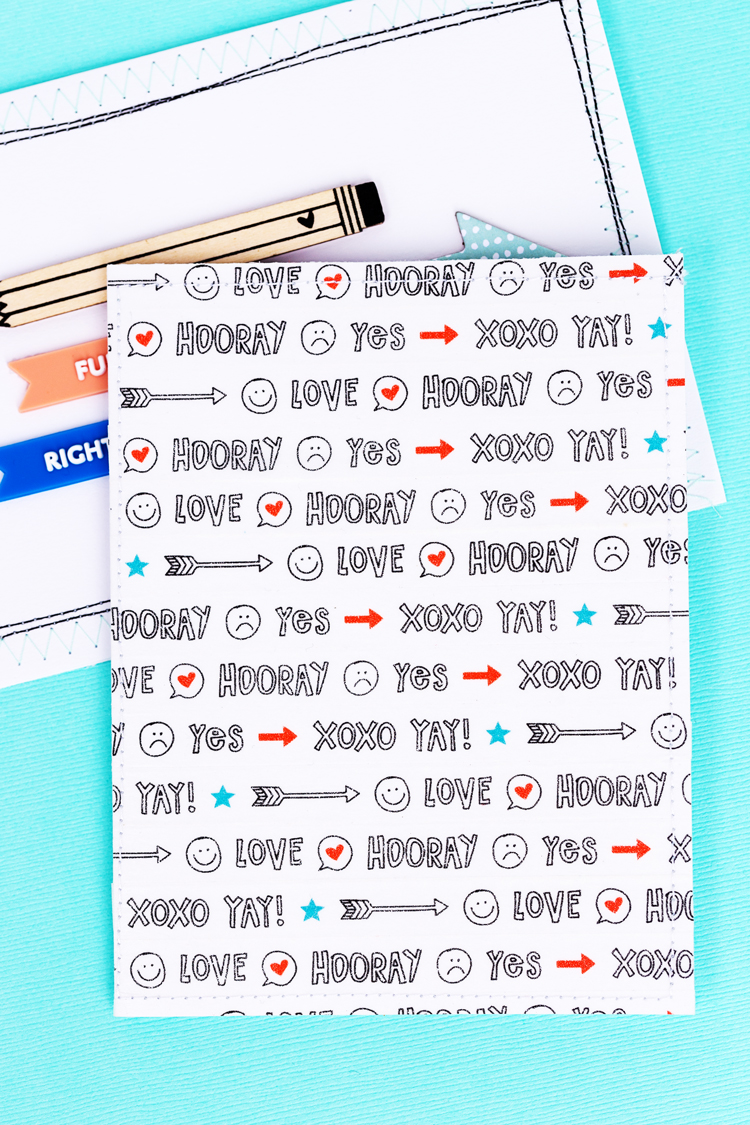 LOVE HOORAY Yes
HOORAY Yes XOXO YAY!
LOVE HOORAY Yes
FU
HOORAY Yes XOXO YAY!
RIGHT
LOVE HOORAY Yes XOXO
LOVE HOORAY Yes
HOORAY Yes XOXO YAY!
OVE HOORAY Yes XOXO YAY!
Y Yes XOXO YAY!
O YAY! LOVE HOORAY
LOVE HOORAY Yes X
XOXO YAY! LOVE HOO
LOVE HOORAY Yes XOXO
LOVE HOORAY Yes